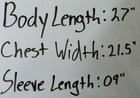 Body Length: 27"
Chest Width: 21.5"
Sleeve Length: 09"